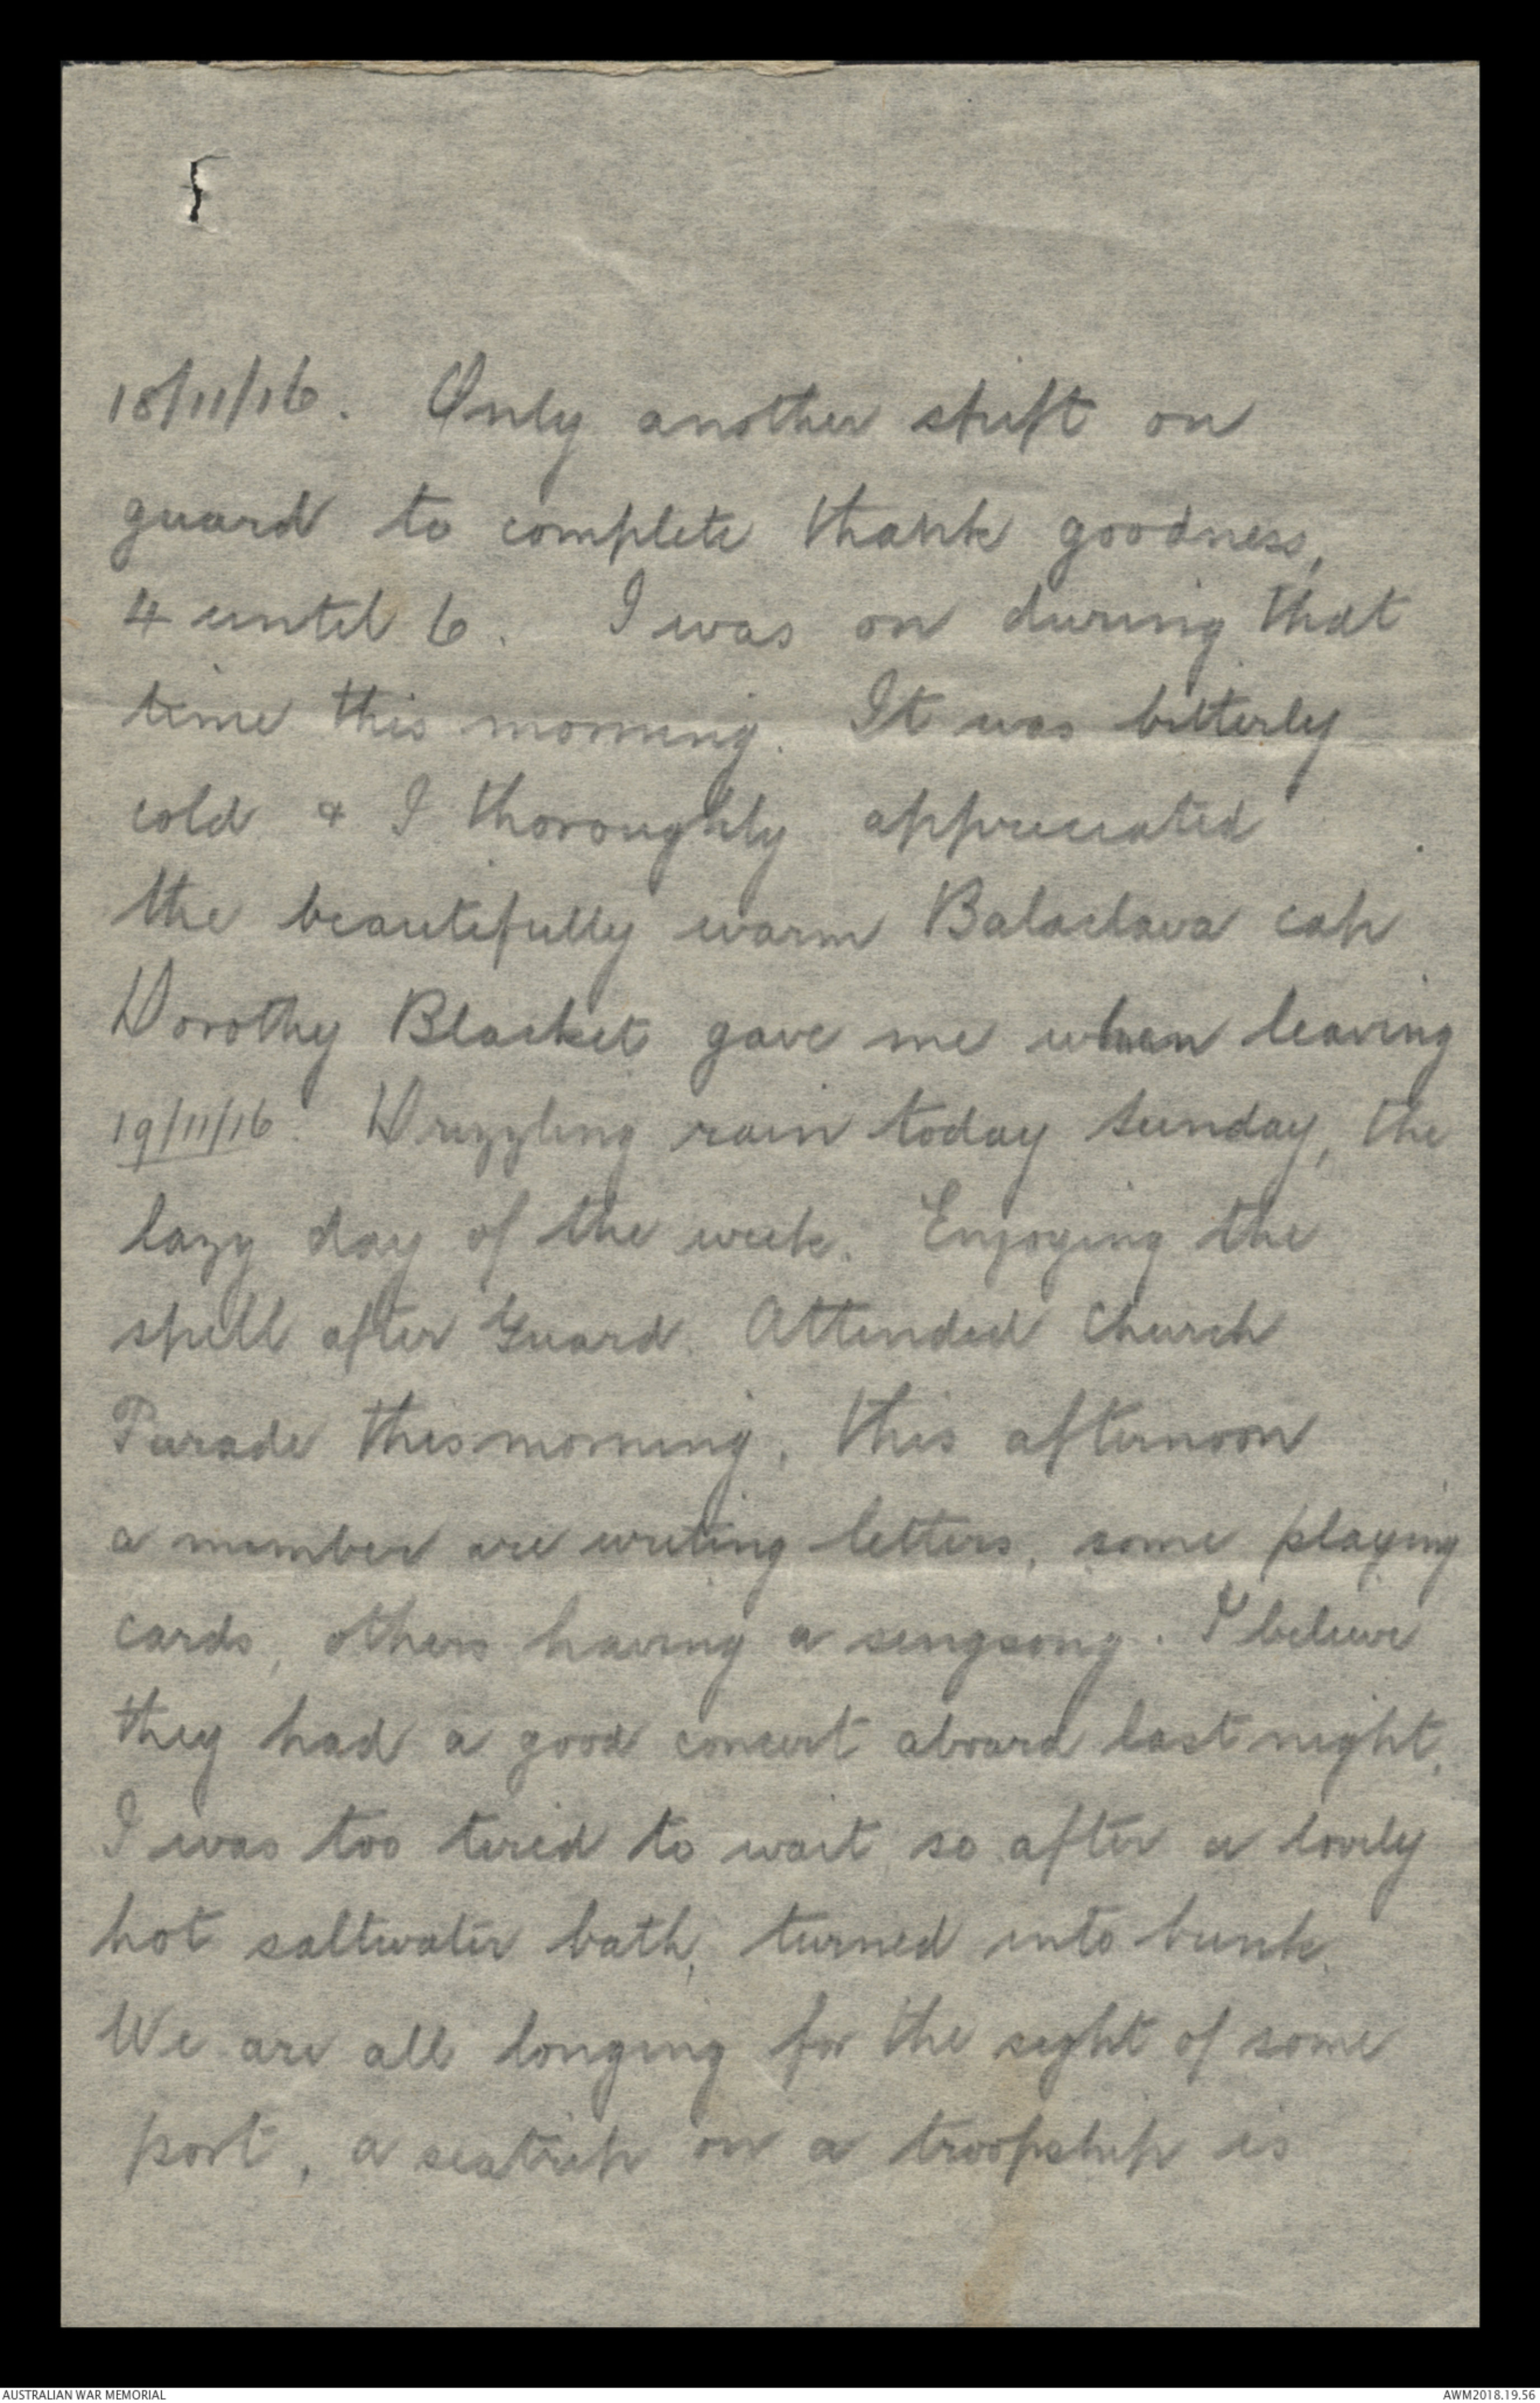 18/11/16. Only another shift on
guard to complete thank goodness,
4 until 6. I was on during that
time this morning. It was bitterly
cold & I thoroughly appreciated
the beautifully warm Balaclava cap
Dorothy Blacket gave me when leaving
19/11/16. Drizzling rain today Sunday, the
lazy day of the week. Enjoying the
spell after Guard. Attended Church
Parade this morning, this afternoon
a number are writing letters, some playing
cards, others having a singsong. I believe
they had a good concert aboard last night,
I was too tired to wait so after a lovely
hot saltwater bath, turned into bunk.
We are all longing for the sight of some
port, a seatrip on a troopship is
AUSTRALIAN WAR MEMORIAL
AWM2018.19.56